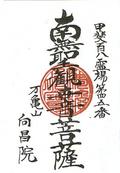 甲斐百八霊場第四五番
南無観世音菩薩
万亀山
向昌院